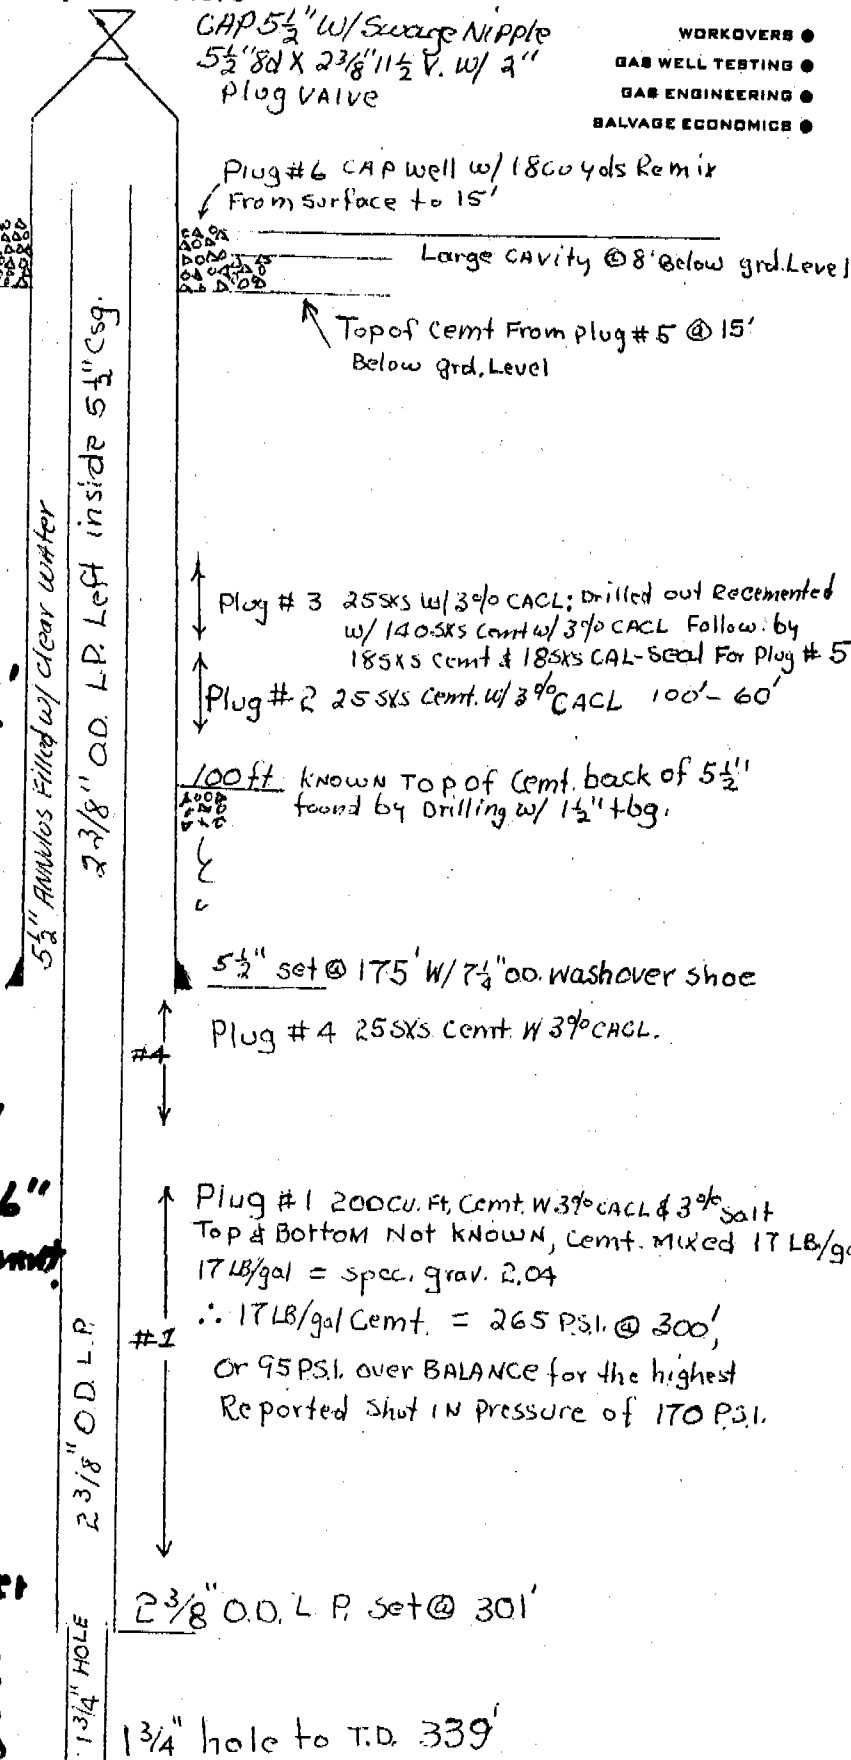 CAP 5½" W/ Swage Nipple
5½" 8d X 2⅜" 11½ V. W/ 2"
Plug VALVE
WORKOVERS ●
GAS WELL TESTING ●
GAS ENGINEERING ●
SALVAGE ECONOMICS ●
Plug #6 CAP well w/ 18 yds Remix
From Surface to 15'
Large CAvity @ 8' Below grd. Level
Top of Cemt From plug #5 @ 15'
Below grd. Level
5½" ANNULOS Filled w/ clear WAter
2 3/8" O.D. L.P. Left inside 5½" Csg.
Plug #3 25SXS w/ 3% CACL; Drilled out Recemented
w/ 140 SXS Cemt w/ 3% CACL Follow. by
18SXS Cemt & 18SXS CAL-Seal For Plug #5
Plug #2 25 SXS Cemt. W/ 3% CACL 100'-60'
100ft KNOWN Top of Cemt. back of 5½"
found by Drilling w/ 1½" tbg.
5½" set @ 175' W/ 7¼" O.D. washover shoe
Plug #4 25SXS Cemt. W 3% CACL.
#4
6"
Plug #1 200 CU. Ft. Cemt. W 3% CACL & 3% Salt
Top & Bottom Not KNOWN, Cemt. Mixed 17 LB/ga
17 LB/gal = spec. grav. 2.04
∴ 17 LB/gal Cemt. = 265 P.S.I. @ 300',
#1
Or 95 P.S.I. over BALANCE for the highest
Reported Shut IN pressure of 170 P.S.I.
2 3/8" O.D. L.P.
2 3/8" O.D. L.P. set @ 301'
1¾" HOLE
1¾" hole to T.D. 339'